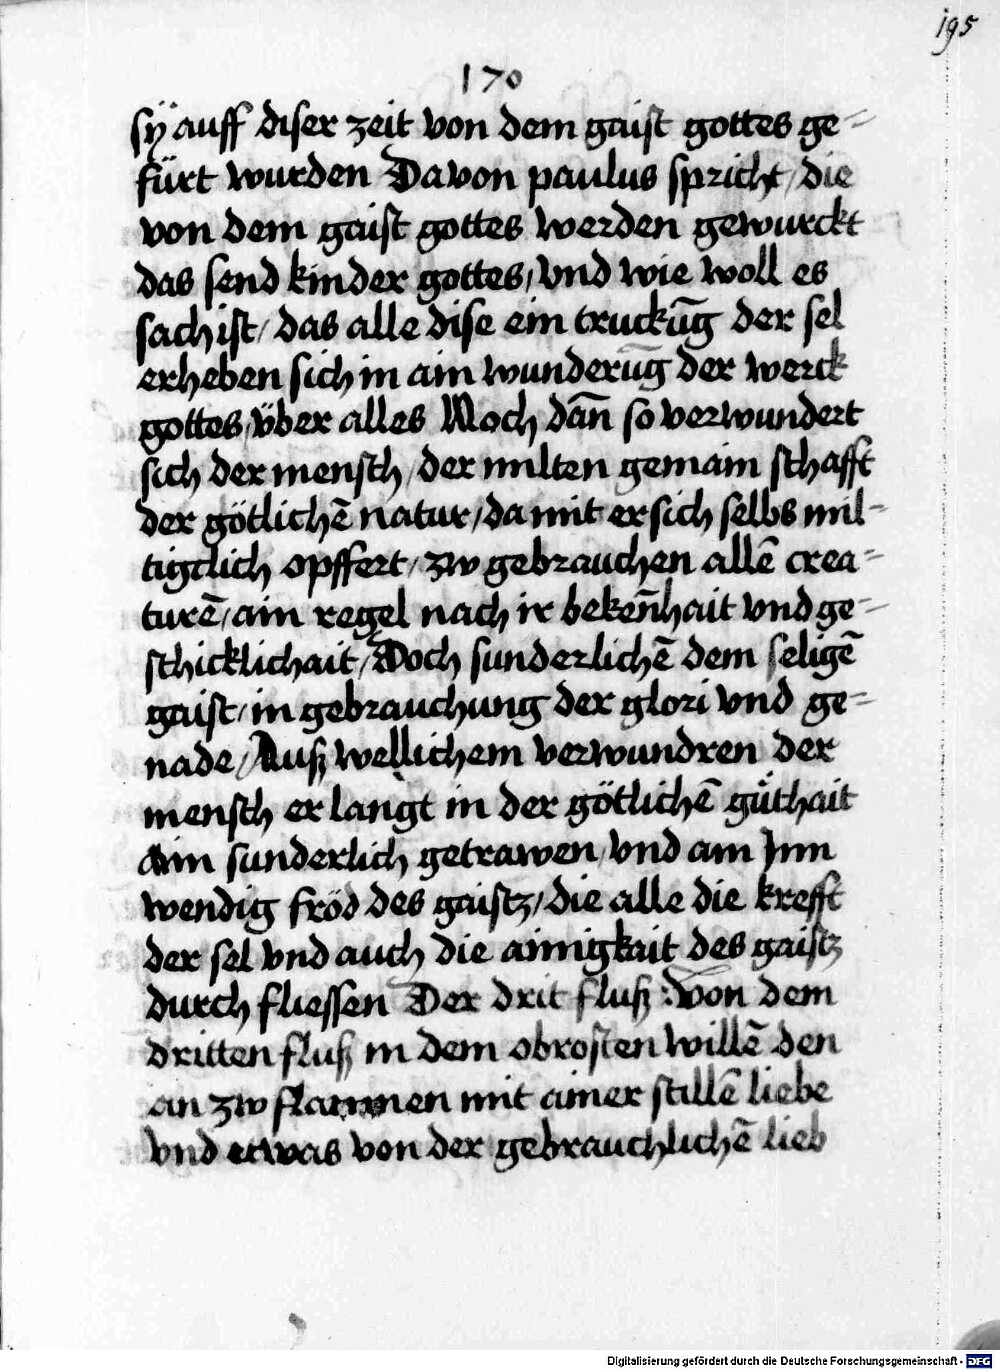 195
170
sÿ auff diser zeit von dem gaist gottes ge=
fürt wurden Davon paulus spricht / die
von dem gaist gottes werden gewurckt
das send kinder gottes / vnd wie woll es
sach ist / das alle dise ein truckūg der sel
erheben sich in ain wunderūg der werck
gottes / über alles Noch dañ so verwundert
sich der mensch / der milten gemain schafft
der götlichē natur / da mit er sich selbs mil=
tigclich opffert / zw gebrauchen allē crea=
turē / ain regel nach ir bekeñhait vnd ge=
schicklichait / Doch sunderlichē dem seligē
gaist / in gebrauchung der glori vnd ge=
nade / Auß wellichem verwundren der
mensch er langt in der götlichē gůthait
Ain sunderlich getrawen / vnd am Jnn
wendig fröd des gaistz / die alle die krefft
der sel vnd auch die ainigkait des gaistz
durch fliessen Der drit fluß : Von dem
dritten fluß in dem obrosten willē den
an zw flammen mit ainer stillē liebe
vnd etwas von der gebrauchlichē lieb
Digitalisierung gefördert durch die Deutsche Forschungsgemeinschaft - DFG